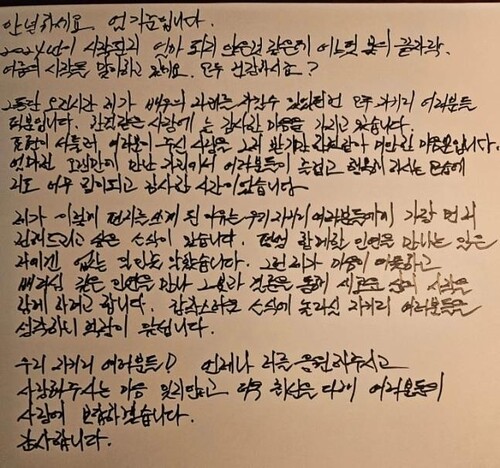 안녕하세요. 엄기준입니다.
2024년이 시작된지 얼마 되지 않은것 같은데 어느덧 봄의 끝자락.
여름의 시작을 맞이하고 있네요. 모두 건강하시죠?
그동안 오랜시간 제가 배우의 자리를 지킬수 있었던건 모두 지기리 여러분들
덕분입니다. 한결같은 사랑에 늘 감사한 마음을 가지고 있습니다.
표현이 서툴러 여러분이 주신 사랑을 그저 받기만 한것같아 미안한 마음뿐입니다.
얼마전 오랜만에 만난 자리에서 여러분들이 즐겁고 행복해 하시는 모습에
저도 너무 힘이되고 감사한 시간이었습니다
제가 이렇게 편지를 쓰게 된 이유는 우리 지기리 여러분들에게 가장 먼저
전해드리고 싶은 소식이 있습니다. 평생 함께할 인연을 만나는 일은
저에겐 없는 줄 알고 살았습니다. 그런 제가 마음이 따뜻하고
배려심 깊은 인연을 만나 그녀와 결혼을 통해 새로운 삶의 시작을
함께 하려고 합니다. 갑작스러운 소식에 놀라실 지기리 여러분들을
생각하니 걱정이 앞섭니다.
우리 지기리 여러분들! 언제나 저를 응원해주시고
사랑해주시는 마음 잊지않고 더욱 최선을 다해 여러분들의
사랑에 보답하겠습니다.
감사합니다.